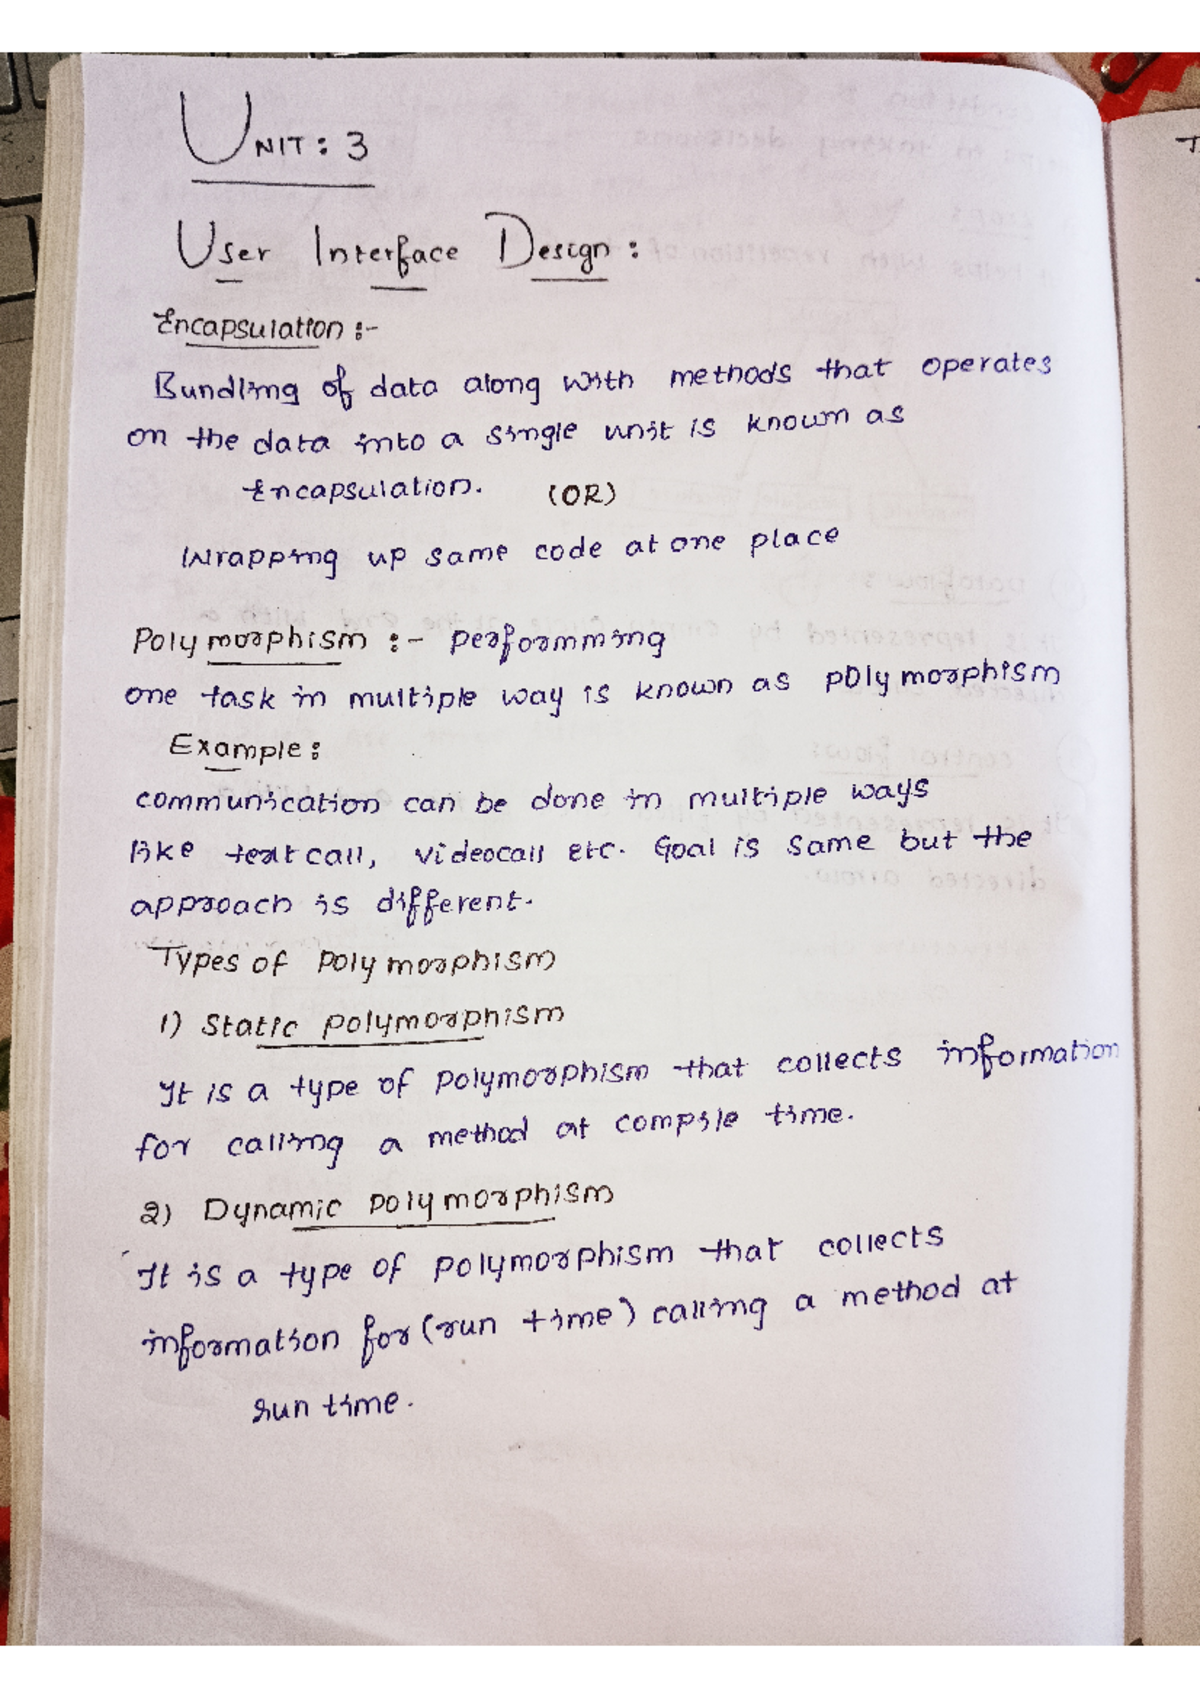 UNIT: 3
User Interface Design:
Encapsulation :-
Bundling of data along with methods that operates
on the data into a single unit is known as
Encapsulation. (OR)
Wrapping up same code at one place
Polymorphism :- performming
one task in multiple way is known as polymorphism
Example:
communication can be done in multiple ways
like text call, videocall Etc. Goal is same but the
approach is different.
Types of polymorphism
1) Static polymorphism
It is a type of polymorphism that collects information
for calling a method at compile time.
2) Dynamic polymorphism
It is a type of polymorphism that collects
information for (run time) calling a method at
run time.